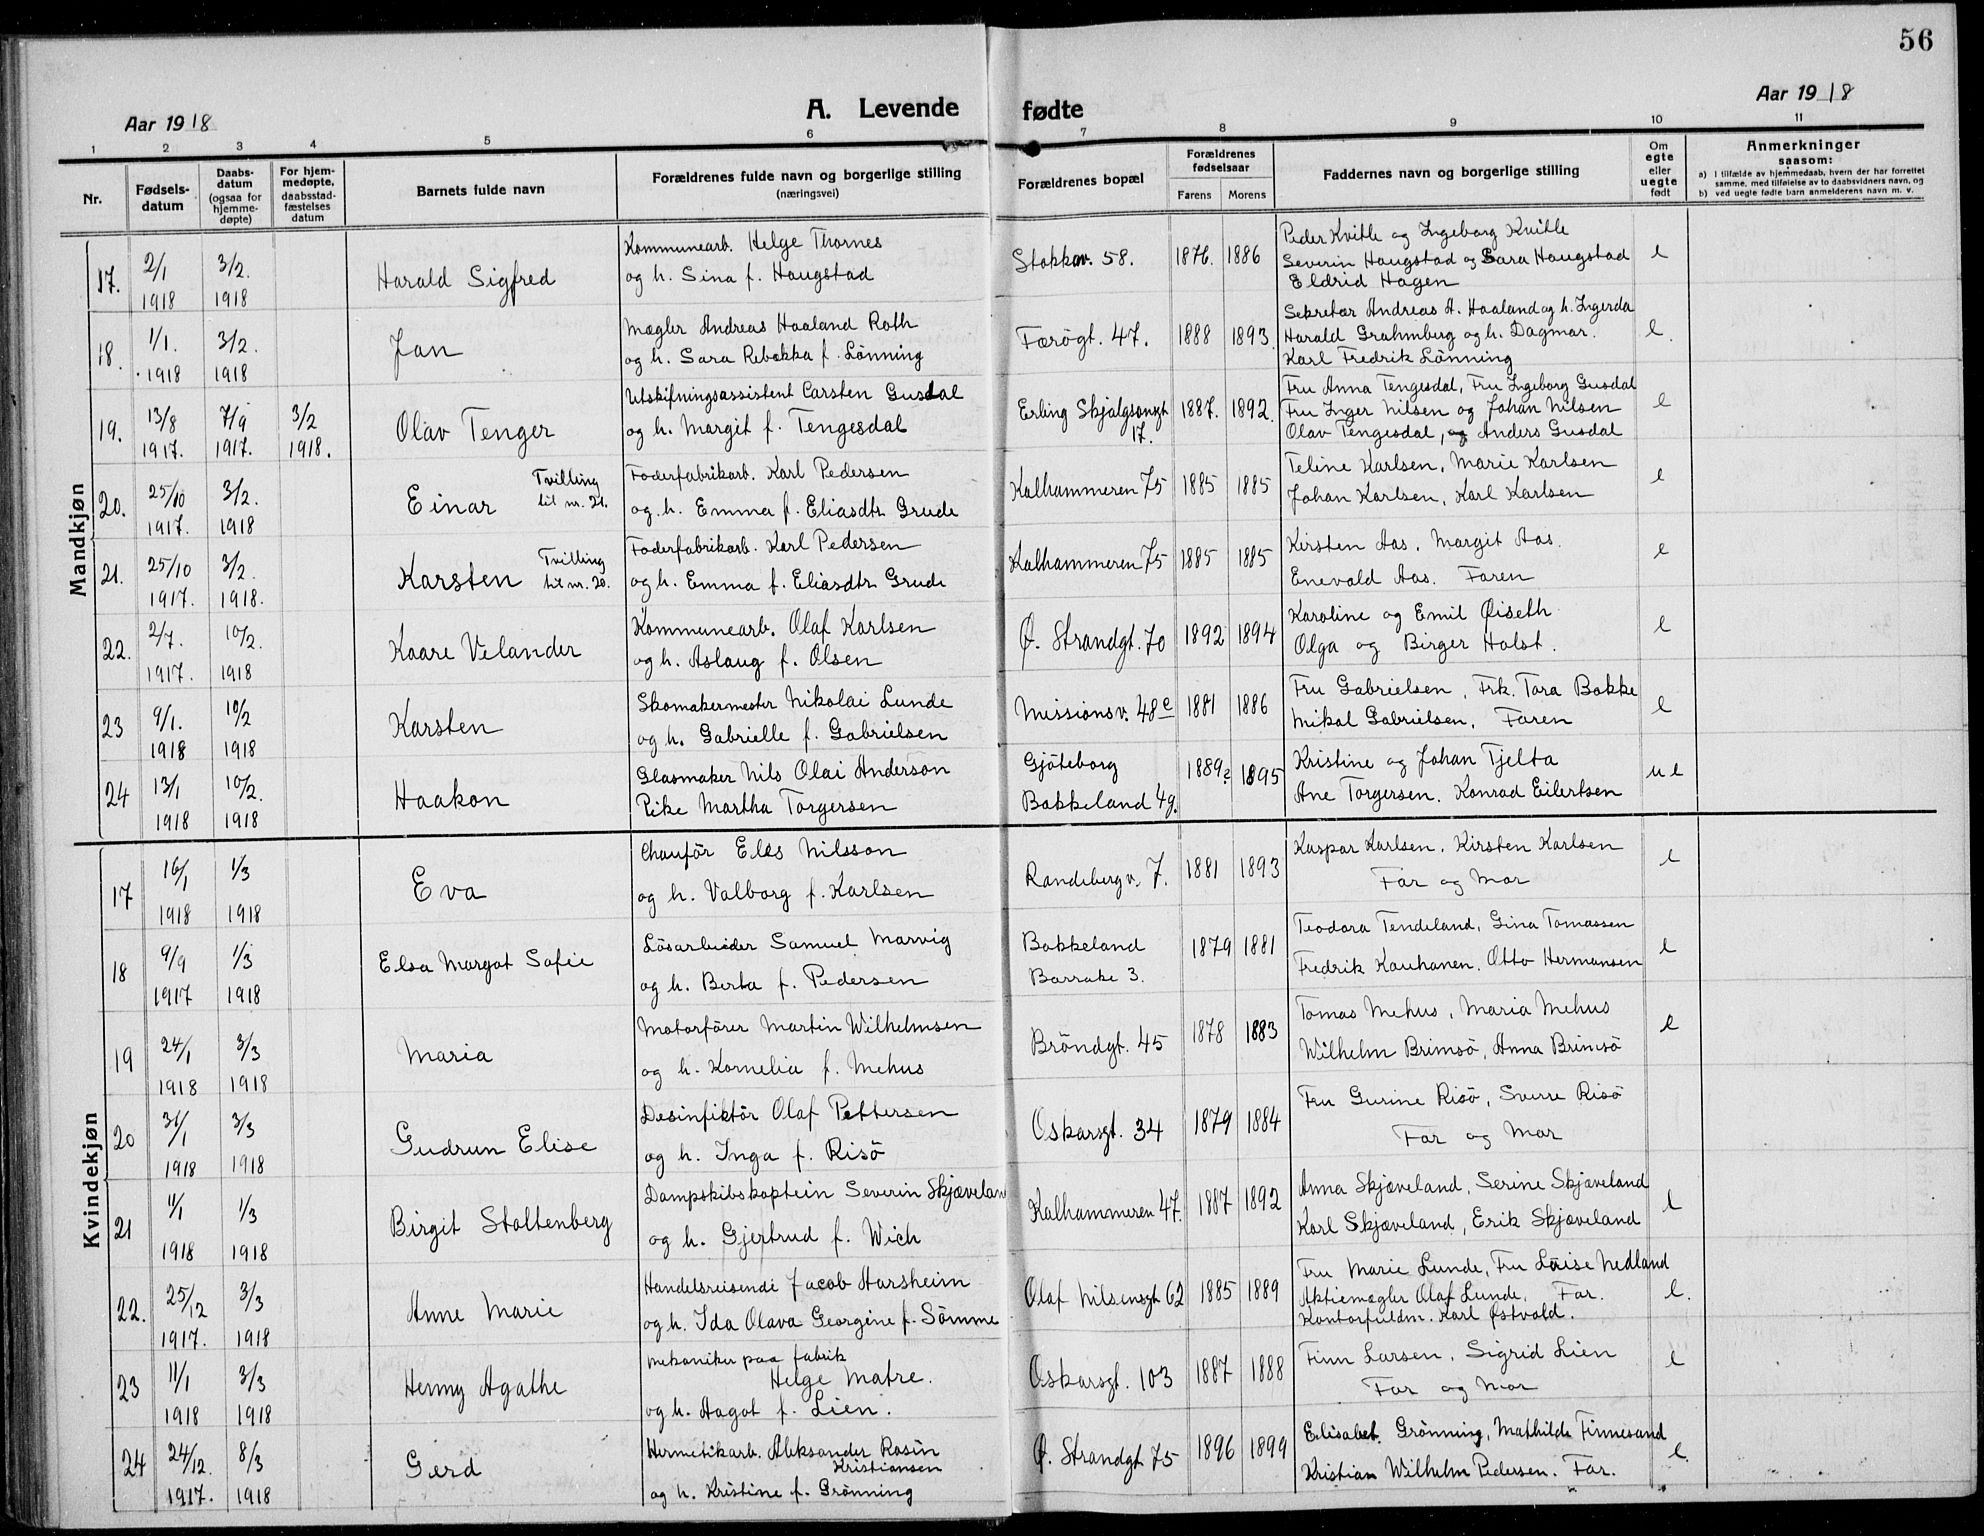 56
Aar 1918
A. Levende fødte
Aar 1918
1 2 3 4 5 6 7 8 9 10 11
Nr.
Fødsels-
datum
Daabs-
datum
(ogsaa for
hjemme-
døpte)
For hjem-
medøpte,
daabsstad-
fæstelses
datum
Barnets fulde navn
Forældrenes fulde navn og borgerlige stilling
(næringsvei)
Forældrenes bopæl
Forældrenes
fødselsaar
Farens Morens
Faddernes navn og borgerlige stilling
Om
egte
eller
uegte
født
Anmerkninger
saasom:
a) I tilfælde av hjemmedaab, hvern der har forrettet
samme, med tilføielse av to daabsvidners navn, og
b) ved uegte fødte barn anmelderens navn m. v.
Mandkjøn
17. 2/1 1918 3/2. 1918 Harald Sigfred
Kommunearb. Helge Thornes
og h. Sina f. Haugstad
Stokkav. 58. 1876. 1886
Peder Kvitle og Ingeborg Kvitle
Severin Haugstad og Sara Haugstad
Eldrid Hagen
e
18. 1/1. 1918 3/2. 1918 Jan
Mægler Andreas Haaland Roth
og h. Sara Rebekka f. Lönning
Færögt. 47. 1888 1893.
Sekretær Andreas A. Haaland og h. Ingerda
Harald Grahmberg og h. Dagmar.
Karl Fredrik Lönning
e.
19. 13/8 1917. 7/9 1917. 3/2 1918. Olav Tenger
Utskiftningsassistent Carsten Gusdal
og h. Margit f. Tengesdal
Erling Skjalgsonsgt
17.
1887. 1892.
Fru Anna Tengesdal, Fru Ingeborg Gusdal
Fru Inger Nilsen og Johan Nilsen
Olav Tengesdal, og Anders Gusdal
e
20. 25/10 1917. 3/2. 1918 Einar
Tvilling
til nr. 21.
Foderfabrikarb. Karl Pedersen
og. h. Emma f. Eliasdtr Grude
Kalhammeren 75 1885 1885
Teline Karlsen, Marie Karlsen
Johan Karlsen, Karl Karlsen
e
21. 25/10 1917. 3/2. 1918. Karsten
Tvilling
til nr. 20.
Foderfabrikarb. Karl Pedersen
og h. Emma f. Eliasdtr Grude
Kalhammeren 75 1885 1885
Kirsten Aas, Margit Aas.
Enevald Aas. Faren
e
22. 2/7. 1917. 10/2. 1918 Kaare Velander
Kommunearb. Olaf Karlsen
og h. Aslaug f. Olsen
Ø. Strandgt. 70 1892 1894
Karoline og Emil Øiseth
Olga og Birger Holst.
e
23 9/1. 1918 10/2 1918 Karsten
Skomakermester Nikolai Lunde
og h. Gabrielle f. Gabrielsen
Missionsv. 48e 1881 1886
Fru Gabrielsen, Frk. Tora Bakke
Mikal Gabrielsen, Faren
e
24 13/1 1918 10/2. 1918 Haakon
Glasmaker Nils Olai Anderson
Pike Martha Torgersen
Gjöteborg
Bakkeland 4g.
1889? 1895
Kristine og Johan Tjelta
Ane Torgersen. Konrad Eilertsen
ue
Kvindekjøn
17 16/1 1918 1/3 1918 Eva
Chauför Elis Nilsson
og h. Valborg f. Karlsen
Randeberg v. 7. 1881 1893
Kaspar Karlsen, Kirsten Karlsen
Far og Mor
e
18 9/9 1917 1/3 1918 Elsa Margot Sofie
Lösarbeider Samuel Marvig
og h. Berta f. Pedersen
Bakkeland
Barrake 3.
1879 1881
Teodora Tendeland, Gina Tomassen
Fredrik Kauhanen. Otto Hermansen
e
19 24/1 1918 3/3 1918 Maria
Motorförer Martin Wilhelmsen
og h. Kornelia f. Mehus
Bröndgt. 45 1878 1883
Tomas Mehus, Maria Mehus
Wilhelm Brimsö, Anna Brimsö
e
20 31/1 1918 3/3 1918 Gudrun Elise
Desinfiktör Olaf Pettersen
og h. Inga f. Risö
Oskarsgt. 34 1879 1884
Fru Gurine Risö, Sverre Risö
Far og Mor
21 11/1 1918 1/3 1918 Birgit Stoltenberg
Dampskibskaptein Severin Skjæveland
og h. Gjertrud f. Wich
Kalhammeren 47. 1887 1892
Anna Skjæveland, Serine Skjæveland
Karl Skjæveland, Erik Skjæveland
e
22. 25/12 1917. 3/3 1918 Anne Marie
Handelsreisende Jacob Harsheim
og h. Ida Olava Georgine f. Sömme
Olaf Nilsensgt 62 1885 1889
Fru Marie Lunde, Fru Låise Nedland
Aktiemægler Olaf Lunde, Far.
Kontorfuldm. Karl Østvold.
e.
23 11/1 1918 3/3 1918 Henny Agathe
Mekaniker paa fabrik
Helge Matre.
og h. Aagot f. Lien.
Oskarsgt. 103 1887 1888
Finn Larsen, Sigrid Lien
Far og Mor
e
24 24/12. 1917. 8/3 1918 Gerd
Hermetikarb. Aleksander Rosin
Kristiansen
og h. Kristine f. Grönning
Ø. Strandgt 75 1896 1899
Elisabet Grönning, Mathilde Finnesand
Kristian Wilhelm Pedersen. Far.
e.